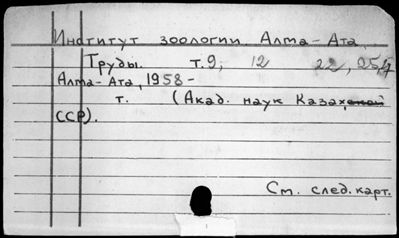 Институт зоологии, Алма-Ата.
Труды. т.9, 12 22, 25,
Алма-Ата, 1958-
т. (Акад. наук Казахской
ССР).
См. след. карт.